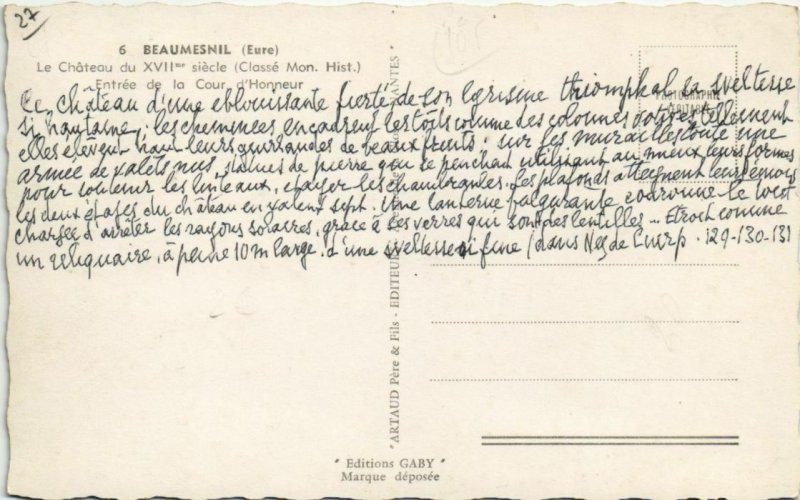 27
6 BEAUMESNIL (Eure)
Le Château du XVIIme siècle (Classé Mon. Hist.)
Entrée de la Cour d'Honneur
Ce château d'une éblouissante fierté, de son triomphal sa sveltesse
si hautaine, les cheminées encadrent les toits comme des colonnes votives tellement
elles élèvent haut leurs guirlandes de beaux fruits; sur les murailles toute une
armée de valets nus, statues de pierre qui se penchant utilisant au mieux leurs formes
pour soutenir les linteaux, étayer les chambranles. Les plafonds atteignent leurs
les deux étages du château en valent sept. Une lanterne fulgurante couronne le toit
chargée d'arrêter les rayons solaires, grâce à ses verres qui sont des lentilles - Etroit comme
un reliquaire, à peine 10 m large. d'une sveltesse si fine (dans Nez de Cuir p. 129-130-131
"ARTAUD Père & Fils - EDITEURS NANTES"
" Editions GABY "
Marque déposée